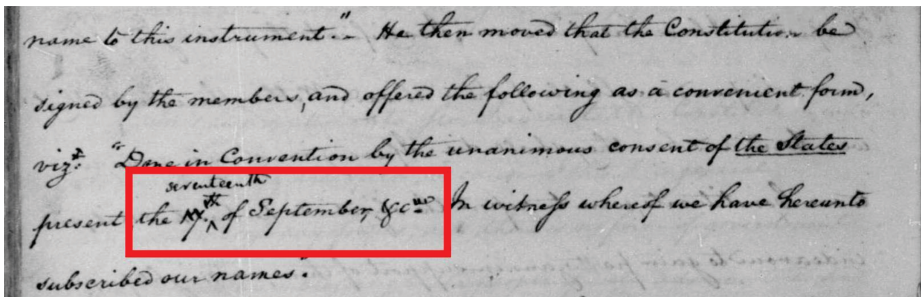 name to this instrument." - He then moved that the Constitution be
signed by the members, and offered the following as a convenient form,
viz.t "Done in Convention by the unanimous consent of the States
seventeenth
present the of September, &c In witness whereof we have hereunto
subscribed our names."